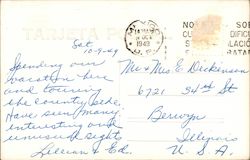 TARJETA POSTAL
MEXICO
1949
NO
SO
DIFIC
LACIÓ
RATAN
Sat.
10-9-49
Spending our
vacation here
and touring
the country side.
Have seen many
interesting and
unusual sights
Lillian & Ed.
Mr & Mrs E. Dickinson
6721 34th St
Berwyn
Illinois
U. S. A.